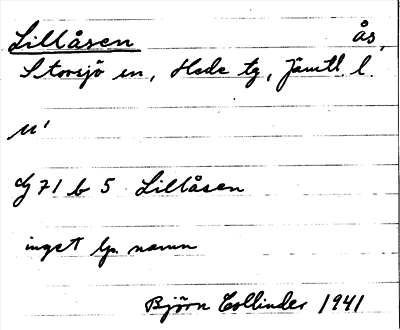 Lillåsen ås,
Storsjö sn, Hede tg, Jämtl. l.
M'
G 71 b 5 Lillåsen
inget lp. namn
Björn Collinder 1941